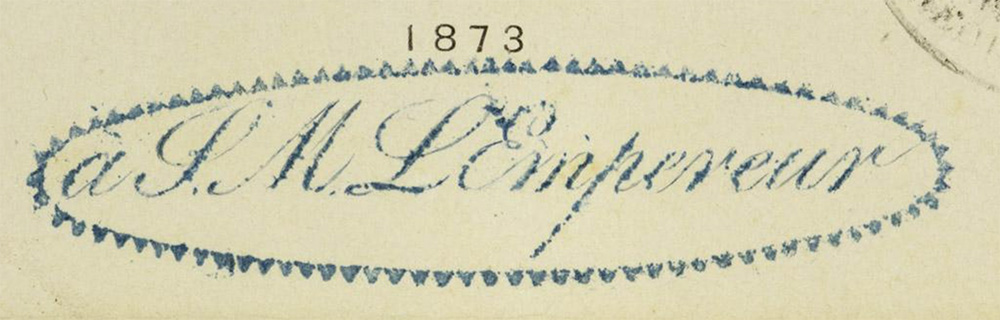 1873
à S. M. L'Empereur